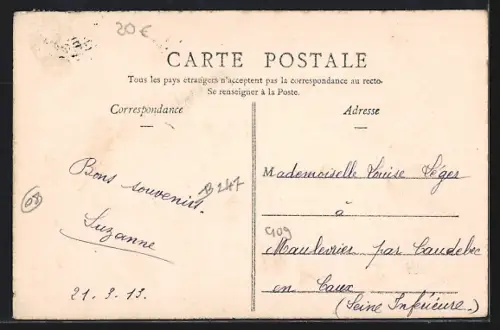 20€
CARTE POSTALE
Tous les pays étrangers n'acceptent pas la correspondance au recto-
Se renseigner à la Poste.
Correspondance
Adresse
Bons souvenirs.
Suzanne
21.9.13.
B247
08
Mademoiselle Louise Léger
à
909
Maulevrier par Caudebec
en Caux
(Seine Inférieure.)